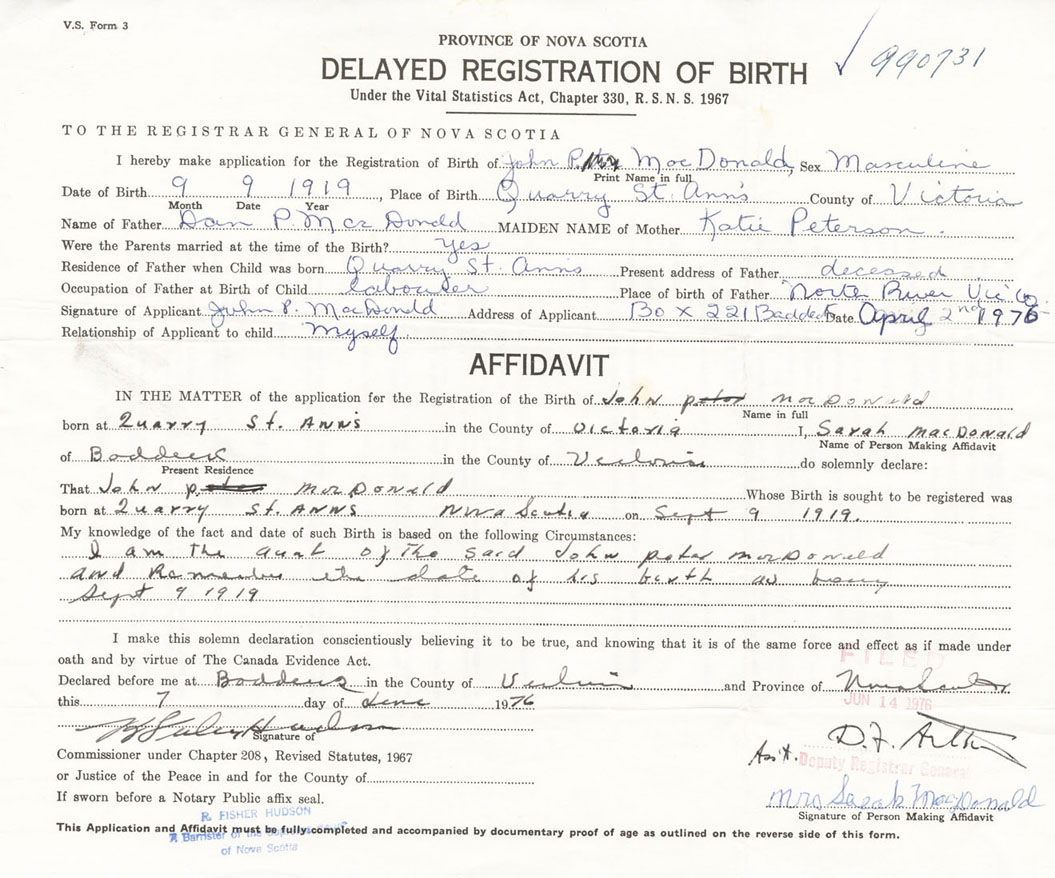 V.S. Form 3
PROVINCE OF NOVA SCOTIA
DELAYED REGISTRATION OF BIRTH
990731
Under the Vital Statistics Act, Chapter 330, R.S.N.S. 1967
TO THE REGISTRAR GENERAL OF NOVA SCOTIA
I hereby make application for the Registration of Birth of John P. MacDonald, Sex Masculine
Print Name in full
Date of Birth 9 9 1919, Place of Birth Quarry St. Ann's County of Victoria
Month Date Year
Name of Father Dan P. MacDonald MAIDEN NAME of Mother Katie Peterson.
Were the Parents married at the time of the Birth? yes
Residence of Father when Child was born Quarry St. Anns Present address of Father deceased
Occupation of Father at Birth of Child labourer Place of birth of Father North River Vic Co.
Signature of Applicant John P. MacDonald Address of Applicant BOX 221 Baddeck Date April 2nd 1976
Relationship of Applicant to child Myself.
AFFIDAVIT
IN THE MATTER of the application for the Registration of the Birth of John peter macDonald
Name in full
born at Quarry St. Anns in the County of Victoria I, Sarah MacDonald
Name of Person Making Affidavit
of Baddeck in the County of Victoria do solemnly declare:
Present Residence
That John p. peter macDonald Whose Birth is sought to be registered was
born at Quarry St. ANNS Nova Scotia on Sept 9 1919.
My knowledge of the fact and date of such Birth is based on the following Circumstances:
I am the aunt of the said John peter macDonald
and Remember the date of his birth as being
Sept 9 1919
I make this solemn declaration conscientiously believing it to be true, and knowing that it is of the same force and effect as if made under
oath and by virtue of The Canada Evidence Act.
FILED
Declared before me at Baddeck in the County of Victoria and Province of Nova Scotia
JUN 14 1976
this 7 day of June 1976
Signature of
Commissioner under Chapter 208, Revised Statutes, 1967
or Justice of the Peace in and for the County of
Ass't. Deputy Registrar General
If sworn before a Notary Public affix seal.
Mrs Sarah MacDonald
Signature of Person Making Affidavit
R. FISHER HUDSON
A Barrister of the Supreme Court
of Nova Scotia
This Application and Affidavit must be fully completed and accompanied by documentary proof of age as outlined on the reverse side of this form.